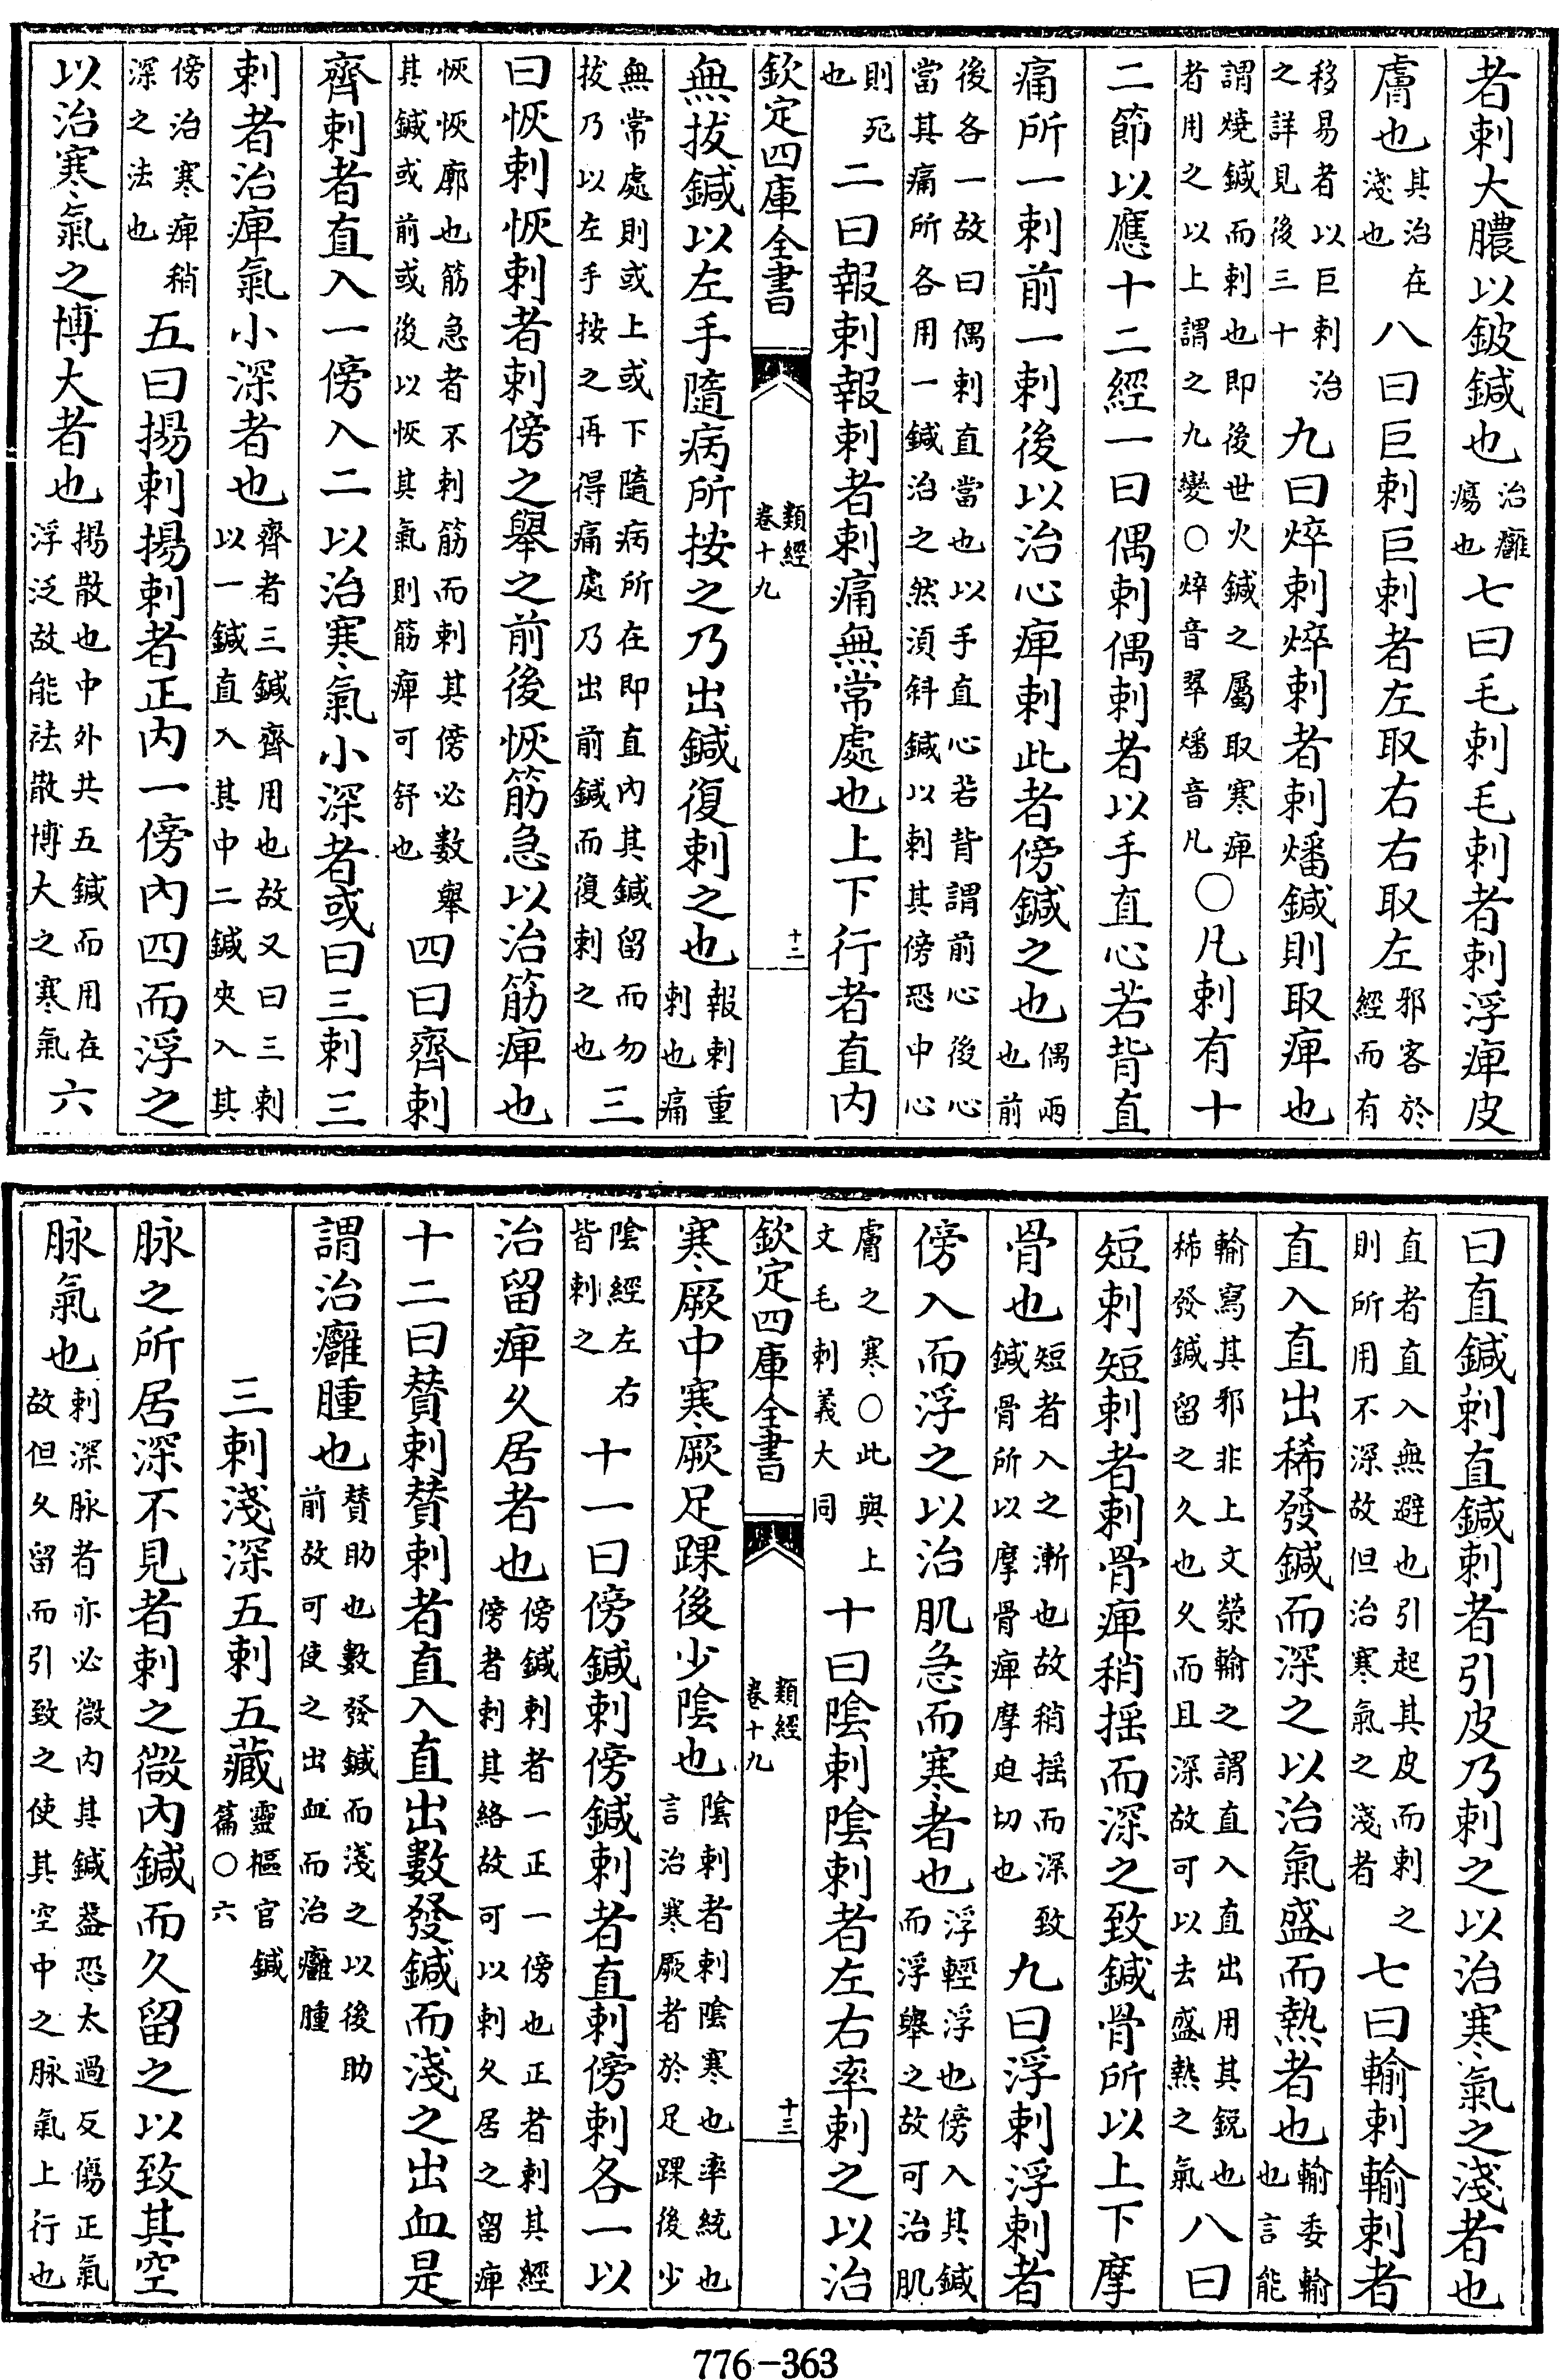 者刺大膿以鈹鍼也治癰瘍也七曰毛刺毛刺者刺浮痺皮
膚也其治在淺也八曰巨刺巨刺者左取右右取左邪客於經而有
移易者以巨刺治之詳見後三十九曰焠刺焠刺者刺燔鍼則取痺也
謂燒鍼而刺也即後世火鍼之屬取寒痺者用之以上謂之九變○焠音翠燔音凡○凡刺有十
二節以應十二經一曰偶刺偶刺者以手直心若背直
痛所一刺前一刺後以治心痺刺此者傍鍼之也偶兩也前
後各一故曰偶刺直當也以手直心若背謂前心後心當其痛所各用一鍼治之然須斜鍼以刺其傍恐中心
則死也二曰報刺報刺者刺痛無常處也上下行者直内
欽定四庫全書 類經卷十九 十二
無拔鍼以左手隨病所按之乃出鍼復刺之也報刺重刺也痛
無常處則或上或下隨病所在即直內其鍼留而勿拔乃以左手按之再得痛處乃出前鍼而復刺之也三
曰恢刺恢刺者刺傍之舉之前後恢筋急以治筋痺也
恢恢廓也筋急者不刺筋而刺其傍必數舉其鍼或前或後以恢其氣則筋痺可舒也四曰齊刺
齊刺者直入一傍入二以治寒氣小深者或曰三刺三
刺者治痺氣小深者也齊者三鍼齊用也故又曰三刺以一鍼直入其中二鍼夾入其
傍治寒痺稍深之法也五曰揚刺揚刺者正内一傍內四而浮之
以治寒氣之博大者也揚散也中外共五鍼而用在浮泛故能祛散博大之寒氣六
曰直鍼刺直鍼刺者引皮乃刺之以治寒氣之淺者也
直者直入無避也引起其皮而刺之則所用不深故但治寒氣之淺者七曰輸刺輸刺者
直入直出稀發鍼而深之以治氣盛而熱者也輸委輸也言能
輸寫其邪非上文滎輸之謂直入直出用其銳也稀發鍼留之久也久而且深故可以去盛熱之氣八曰
短刺短刺者刺骨痺稍摇而深之致鍼骨所以上下摩
骨也短者入之漸也故稍摇而深致鍼骨所以摩骨痺摩迫切也九曰浮刺浮刺者
傍入而浮之以治肌急而寒者也浮輕浮也傍入其鍼而浮舉之故可治肌
膚之寒○此與上文毛刺義大同十曰陰刺陰刺者左右率刺之以治
欽定四庫全書 類經卷十九 十三
寒厥中寒厥足踝後少陰也陰刺者刺陰寒也率統也言治寒厥者於足踝後少
陰經左右皆刺之十一曰傍鍼刺傍鍼刺者直刺傍刺各一以
治留痺久居者也傍鍼刺者一正一傍也正者刺其經傍者刺其絡故可以刺久居之留痺
十二曰贊刺贊刺者直入直出數發鍼而淺之出血是
謂治癰腫也贊助也數發鍼而淺之以後助前故可使之出血而治癰腫
三刺淺深五刺五藏靈樞官鍼篇○六
脉之所居深不見者刺之微內鍼而久留之以致其空
脉氣也刺深脉者亦必微内其鍼蓋恐太過反傷正氣故但久留而引致之使其空中之脉氣上行也
776-363